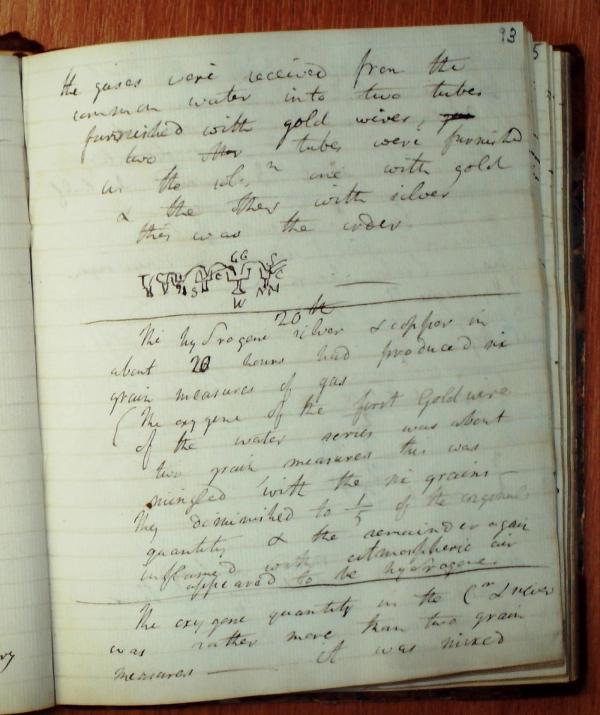 93
the gases were received from the
common water into two tubes
furnished with gold wires,
two tubes were furnished
in the one with gold
& the other with silver
this was the order
GG
S
W
20th
The hydrogene silver & copper in
about 20 hours had produced six
grain measures of gas
(The oxygene of the first Gold wire
of the water series was about
two grain measures this was
mingled with the six grains —
They diminished to 1/5 of the original
quantity & the remainder again
inflamed with atmospheric air
appeared to be hydrogene.
The oxygene quantity in the & silver
was rather more than two grain
measures — It was mixed
5